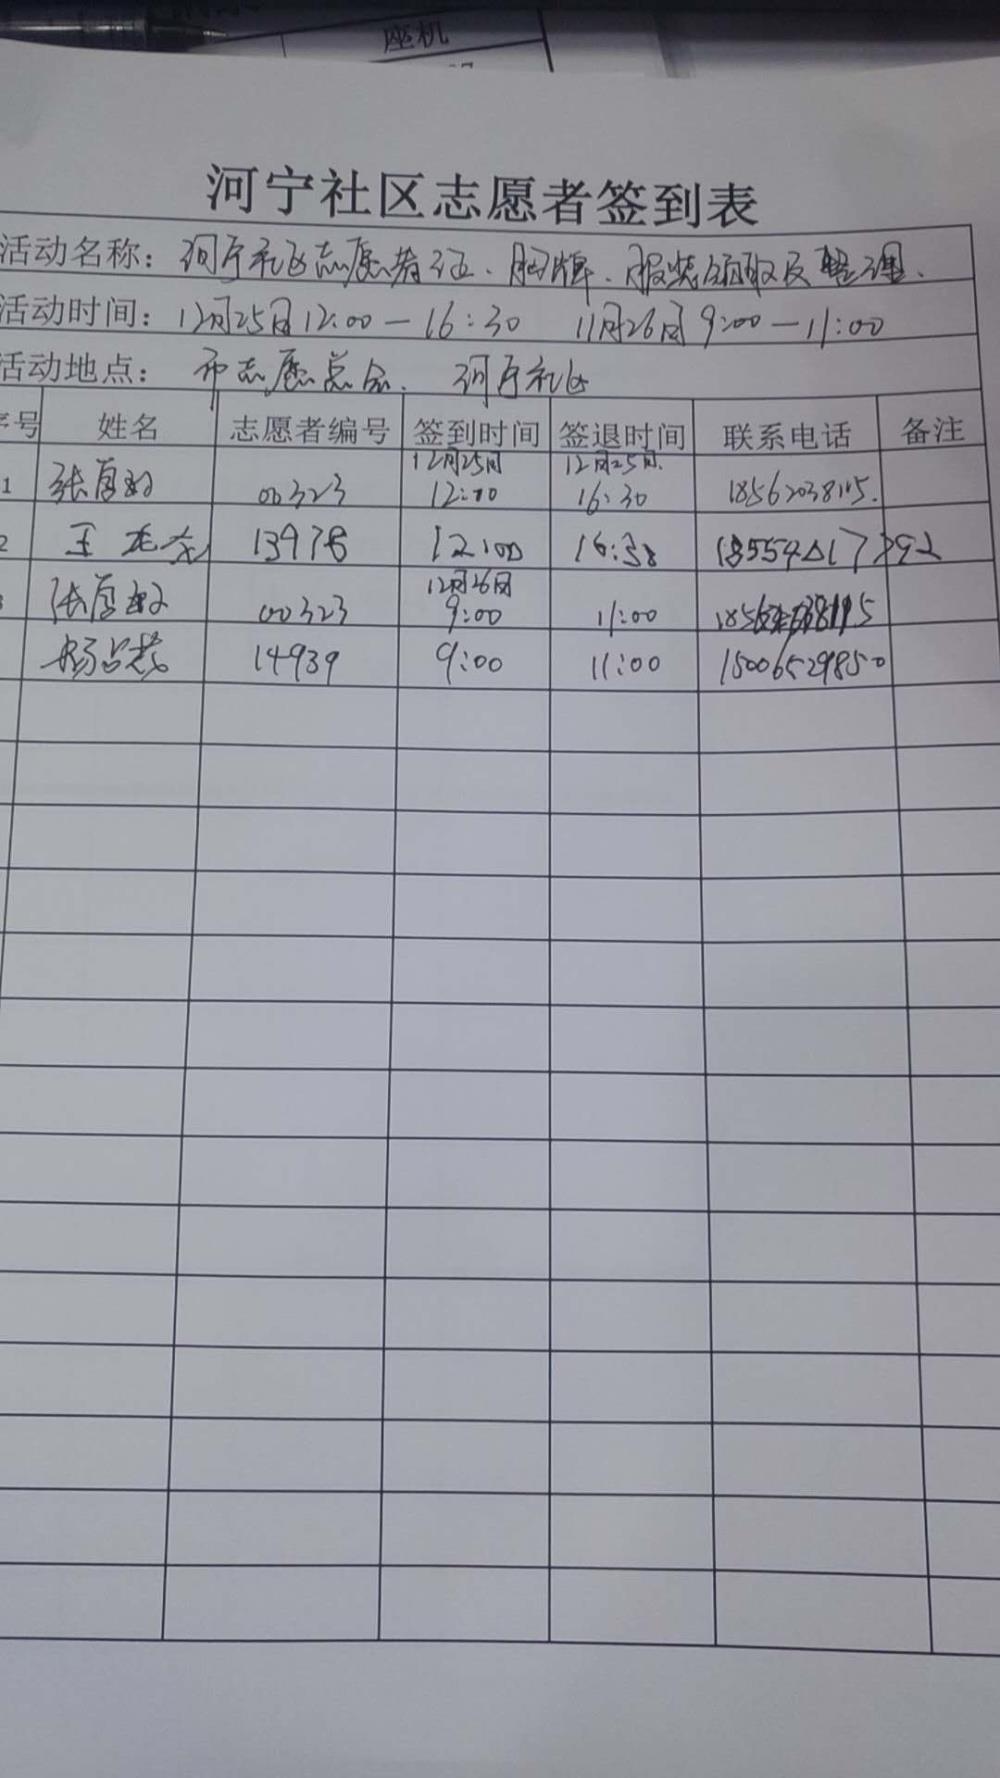 座机
河宁社区志愿者签到表
活动名称：河宁社区志愿者证、胸牌、服装领取及整理.
活动时间：12月25日12:00—16:30 11月26日9:00—11:00
活动地点：市志愿总会. 河宁社区
序号 姓名 志愿者编号 签到时间 签退时间 联系电话 备注
1 00323 12月25日 12:00 12月25日. 16:30
2 王 13978 12:00 16:30
00323 12月26日 9:00 11:00
杨占 14939 9:00 11:00 15006529850